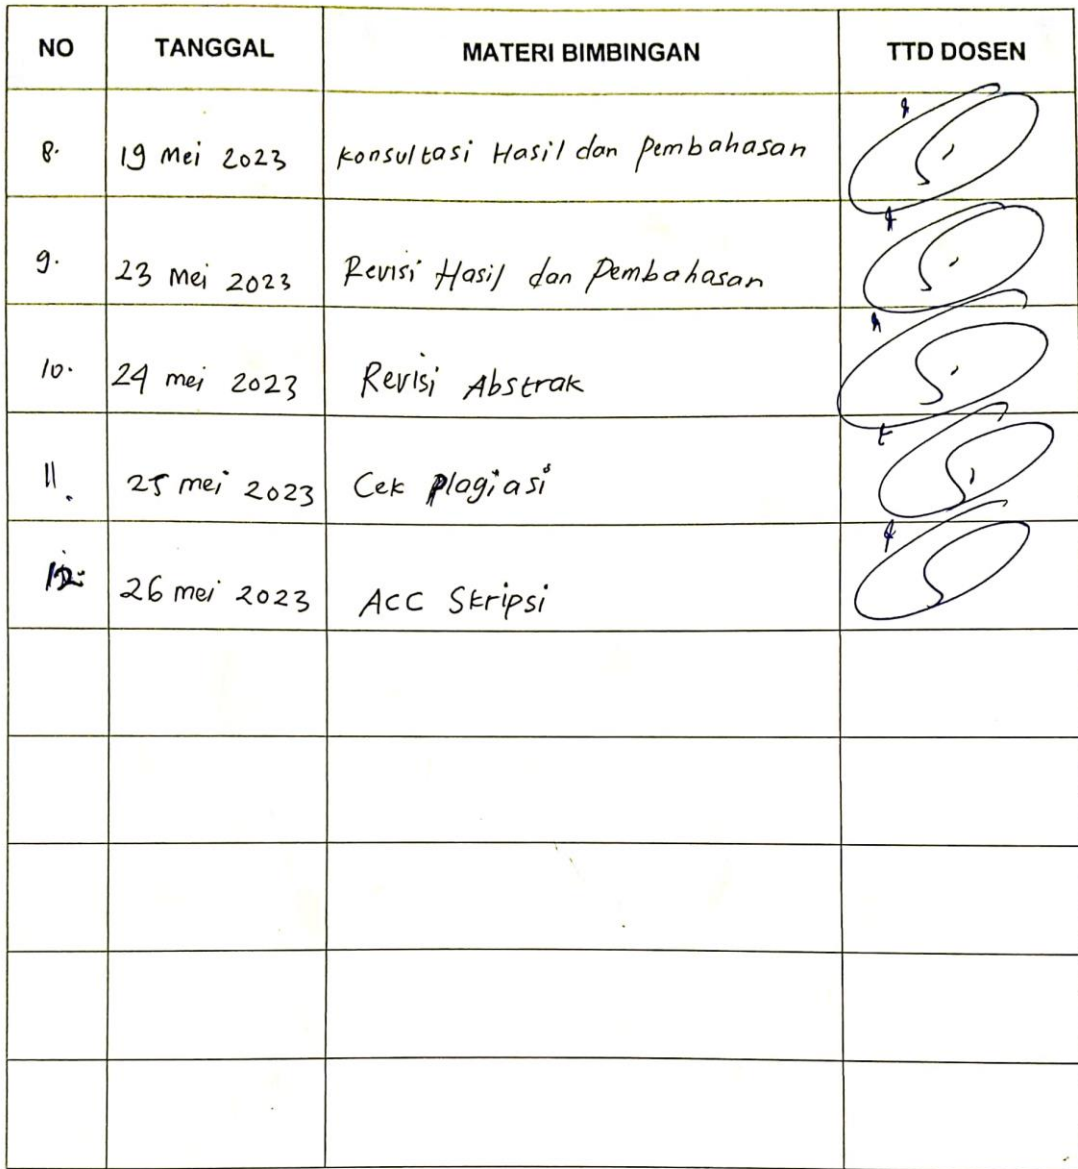 NO TANGGAL MATERI BIMBINGAN TTD DOSEN
8. 19 Mei 2023 Konsultasi Hasil dan Pembahasan
9. 23 Mei 2023 Revisi Hasil dan Pembahasan
10. 24 mei 2023 Revisi Abstrak
11. 25 mei 2023 Cek plagiasi
12. 26 mei 2023 ACC Skripsi